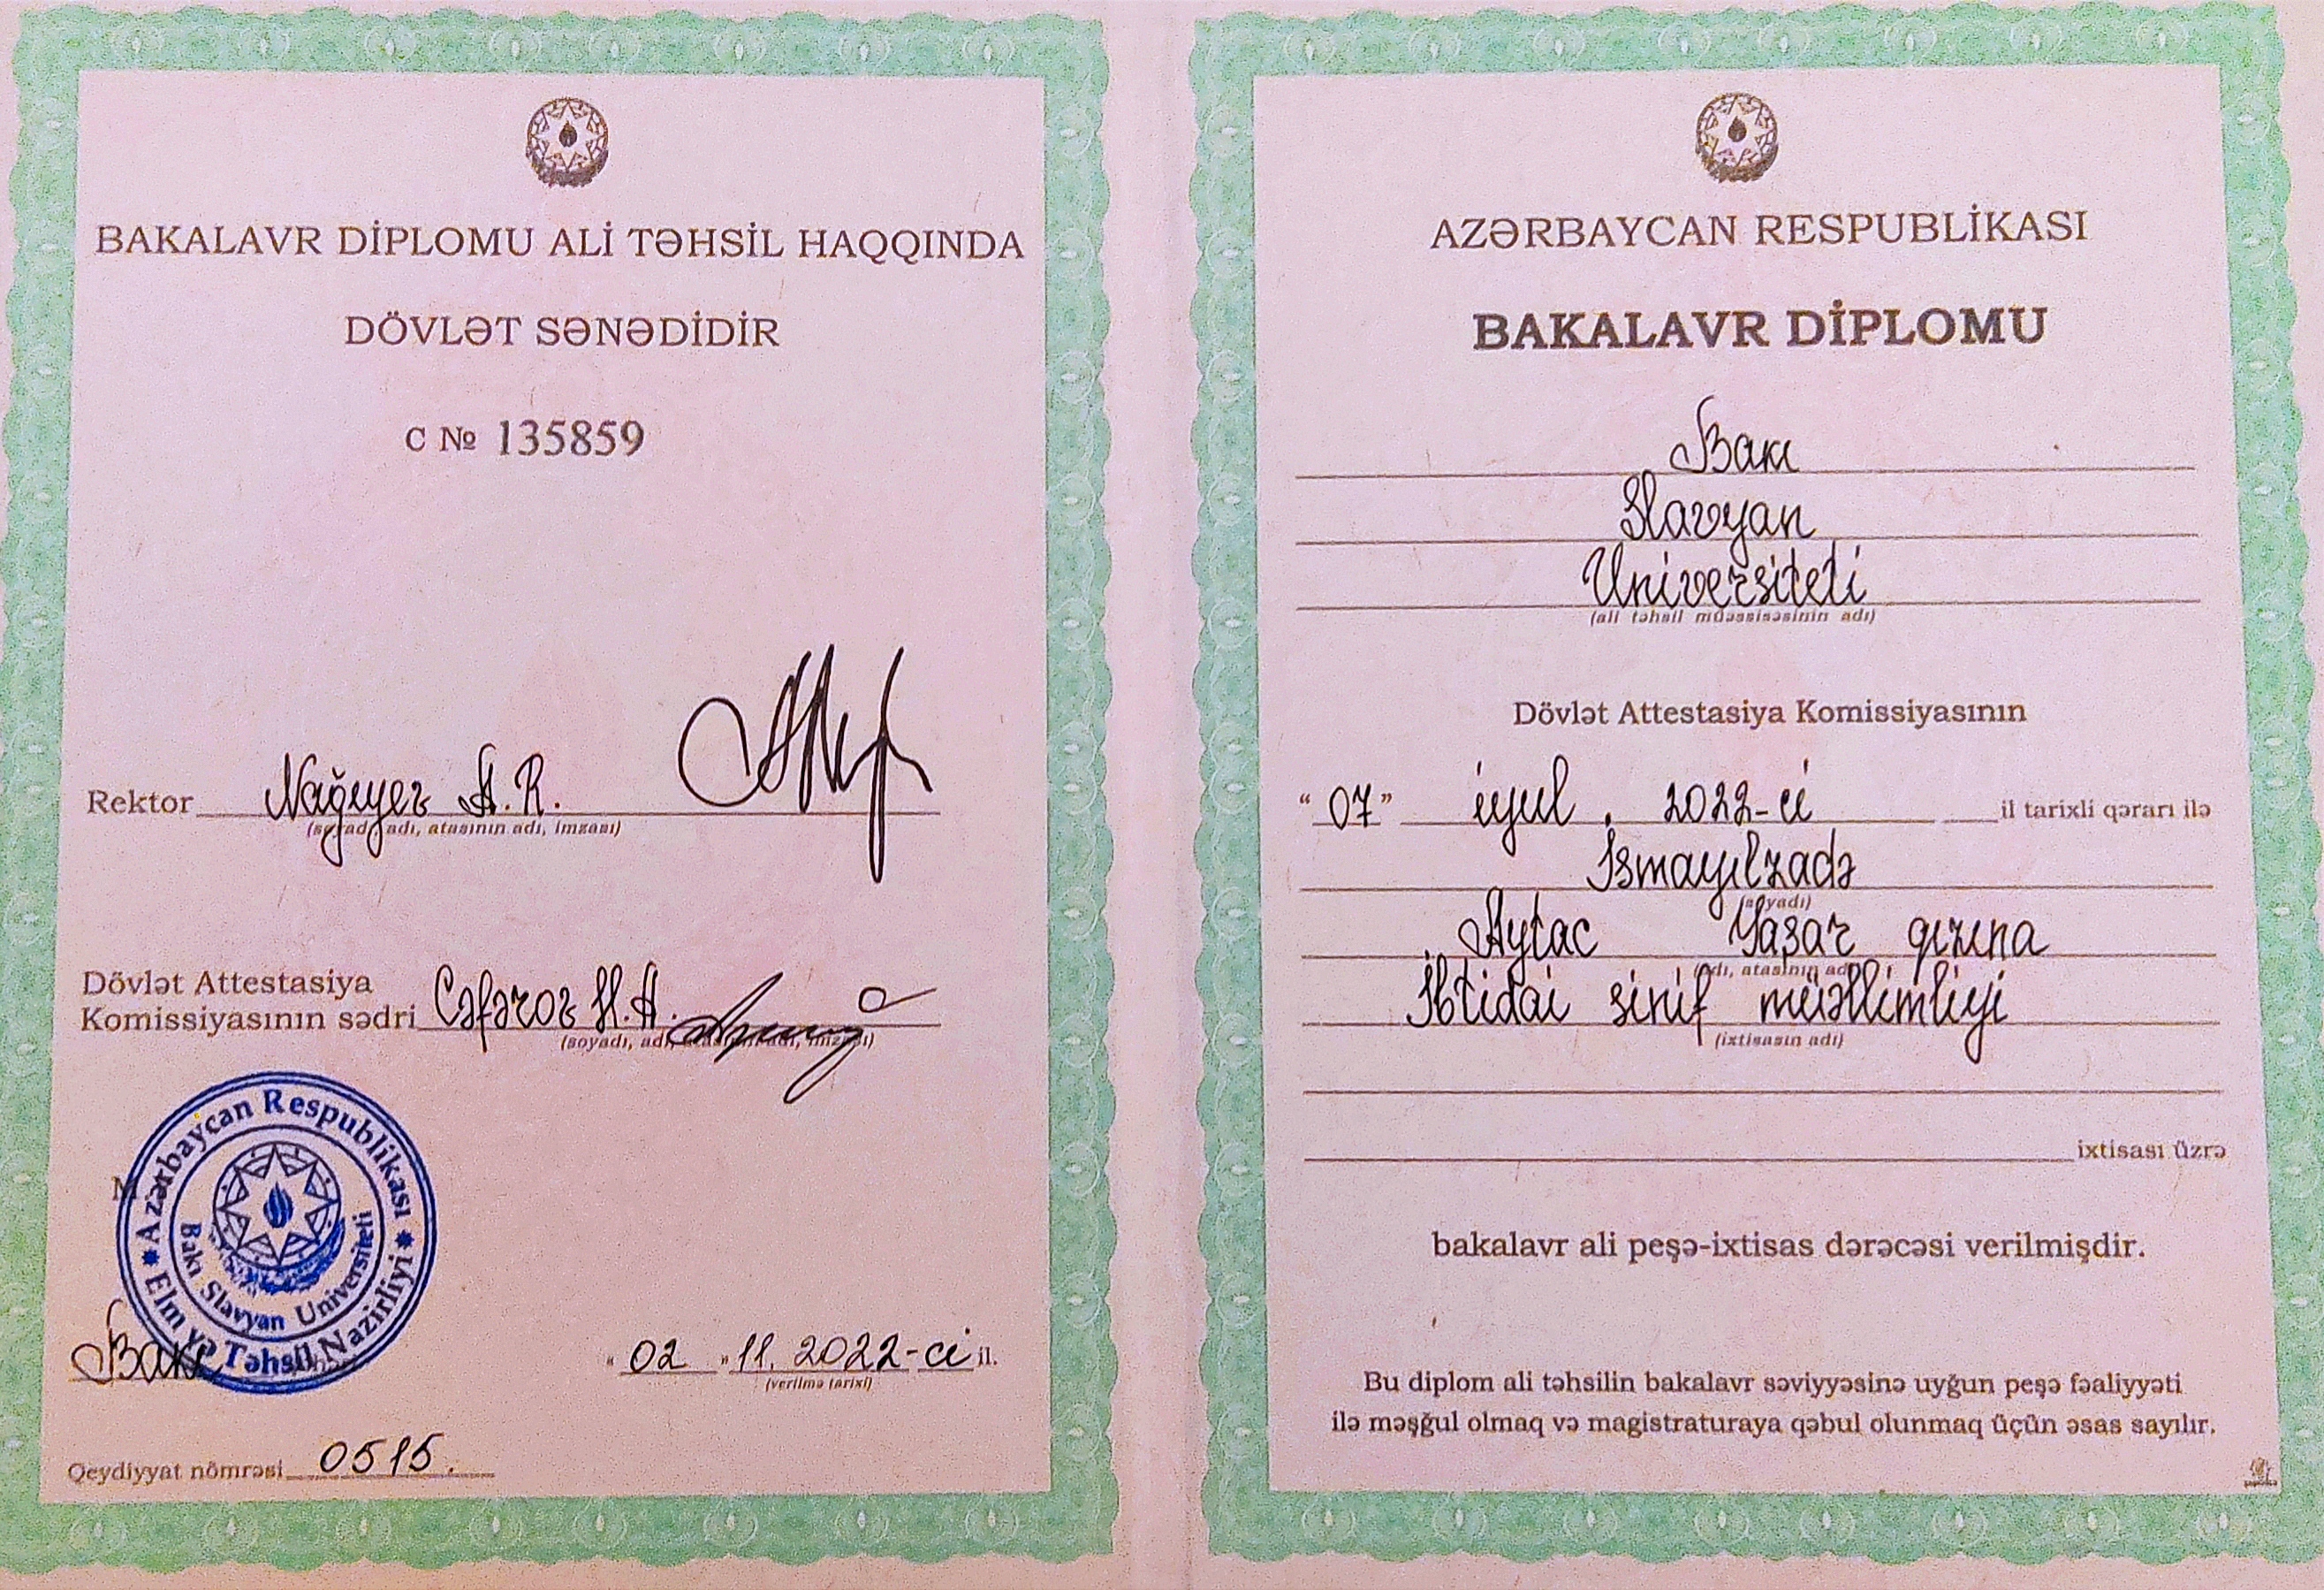 BAKALAVR DİPLOMU ALİ TƏHSİL HAQQINDA
DÖVLƏT SƏNƏDİDİR
C № 135859
Rektor Nağıyev A. R.
(soyadı, adı, atasının adı, imzası)
Dövlət Attestasiya
Komissiyasının sədri Cəfərov H.A.
(soyadı, adı, atasının adı, imzası)
M
Azərbaycan Respublikası
Elm və Təhsil Nazirliyi
Bakı Slavyan Universiteti
Bakı
“02” 11. 2022-ci il.
(verilmə tarixi)
Qeydiyyat nömrəsi 0515.
AZƏRBAYCAN RESPUBLİKASI
BAKALAVR DİPLOMU
Bakı
Slavyan
Universiteti
(ali təhsil müəssisəsinin adı)
Dövlət Attestasiya Komissiyasının
“07” iyul. 2022-ci il tarixli qərarı ilə
İsmayılzadə
(soyadı)
Aytac Yaşar qızına
(adı, atasının adı)
İbtidai sinif müəllimliyi
(ixtisasın adı)
ixtisası üzrə
bakalavr ali peşə-ixtisas dərəcəsi verilmişdir.
Bu diplom ali təhsilin bakalavr səviyyəsinə uyğun peşə fəaliyyəti
ilə məşğul olmaq və magistraturaya qəbul olunmaq üçün əsas sayılır.